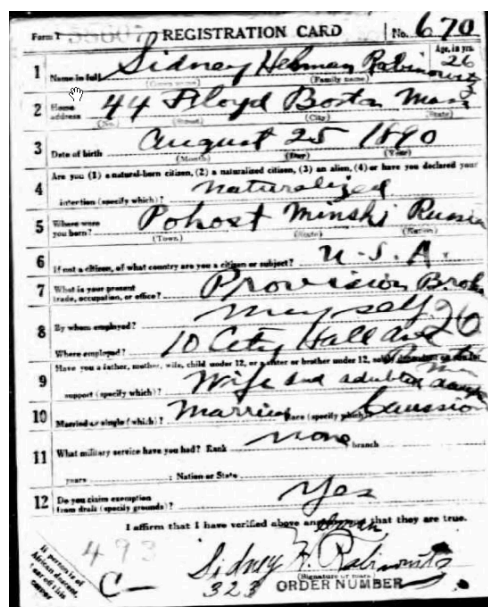 Form 1 58607 REGISTRATION CARD No. 670
1 Name in full Sidney Hyman Rabinowitz Age, in yrs. 26
(Given name) (Family name)
2 Home address 44 Floyd Boston Mass
(No.) (Street) (City) (State)
3 Date of birth August 25 1890
(Month) (Day) (Year)
4 Are you (1) a natural-born citizen, (2) a naturalized citizen, (3) an alien, (4) or have you declared your
intention (specify which)? naturalized
5 Where were you born? Pohost Minski Russia
(Town) (State) (Nation)
6 If not a citizen, of what country are you a citizen or subject? U.S.A.
7 What is your present trade, occupation, or office? Provision Brok
8 By whom employed? myself 26
Where employed? 10 City Hall Ave
9 Have you a father, mother, wife, child under 12, or a sister or brother under 12, solely dependent on you for
support (specify which)? Wife and
10 Married or single (which)? Married Race (specify which)?
11 What military service have you had? Rank none branch
years ; Nation or State
12 Do you claim exemption from draft (specify grounds)? Yes
I affirm that I have verified above answers that they are true.
493
Sidney H. Rabinowitz
(Signature or mark)
If person is of African descent, tear off this corner
C
323 ORDER NUMBER